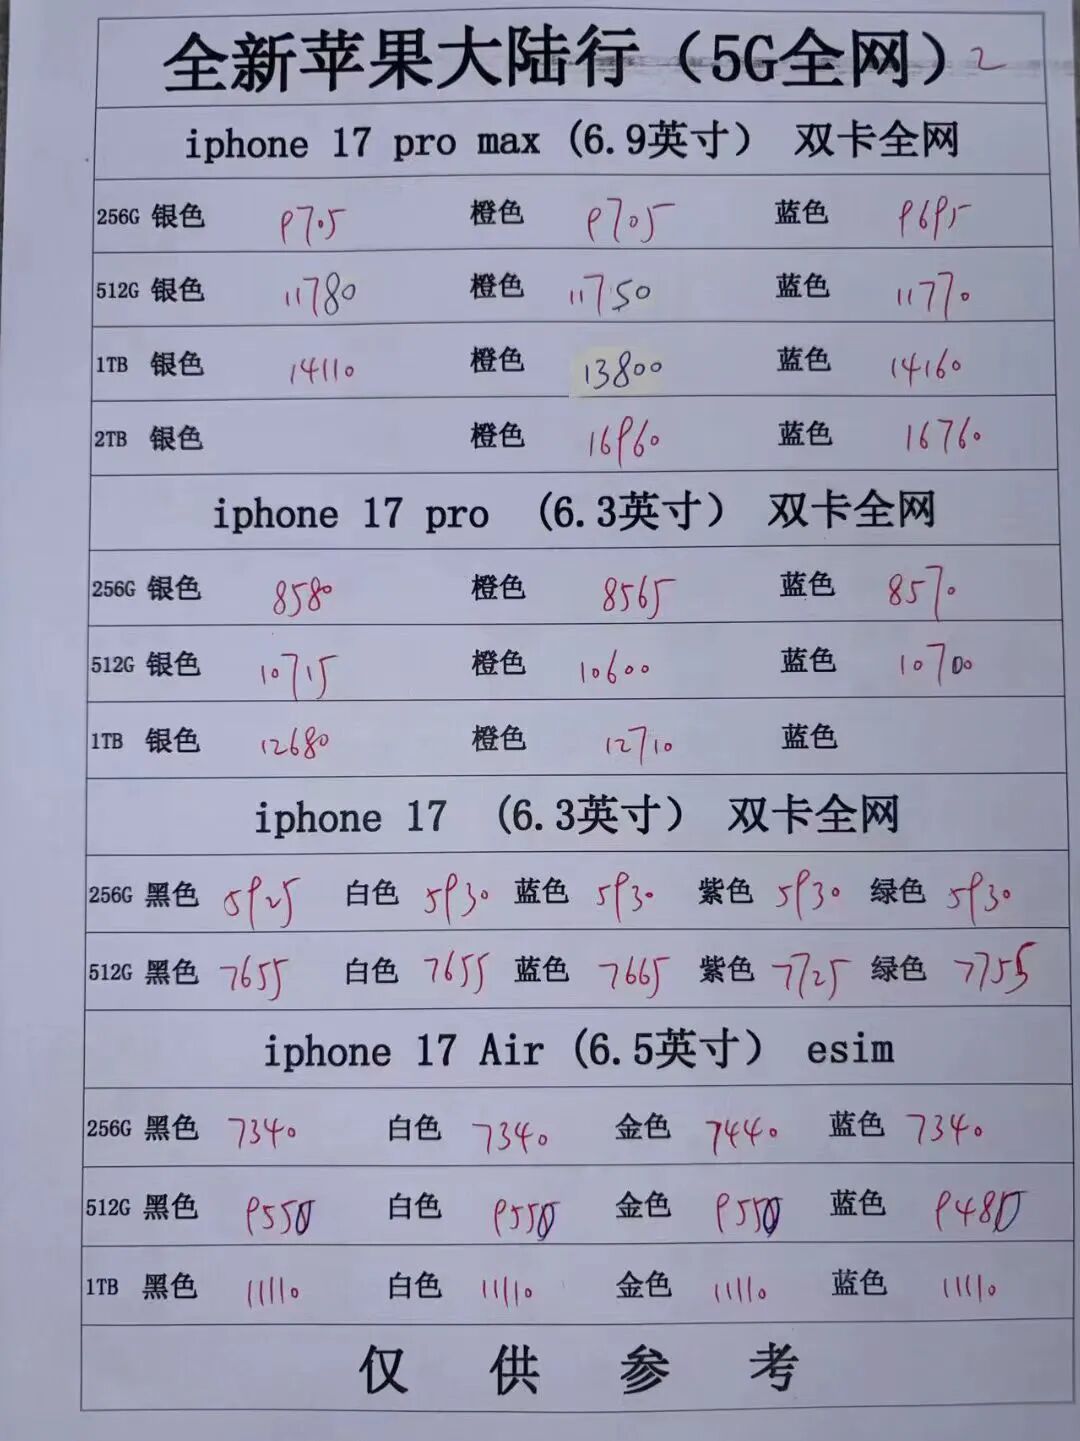 全新苹果大陆行（5G全网）2
iphone 17 pro max (6.9英寸） 双卡全网
256G 银色 9705 橙色 9705 蓝色 9695
512G 银色 11780 橙色 11750 蓝色 11770
1TB 银色 14110 橙色 13800 蓝色 14160
2TB 银色 橙色 16960 蓝色 16760
iphone 17 pro （6.3英寸） 双卡全网
256G 银色 8580 橙色 8565 蓝色 8570
512G 银色 10715 橙色 10600 蓝色 10700
1TB 银色 12680 橙色 12710 蓝色
iphone 17 （6.3英寸） 双卡全网
256G 黑色 5925 白色 5930 蓝色 5930 紫色 5930 绿色 5930
512G 黑色 7655 白色 7655 蓝色 7665 紫色 7725 绿色 7755
iphone 17 Air (6.5英寸） esim
256G 黑色 7340 白色 7340 金色 7440 蓝色 7340
512G 黑色 9550 白色 9550 金色 9550 蓝色 9480
1TB 黑色 11110 白色 11110 金色 11110 蓝色 11110
仅 供 参 考